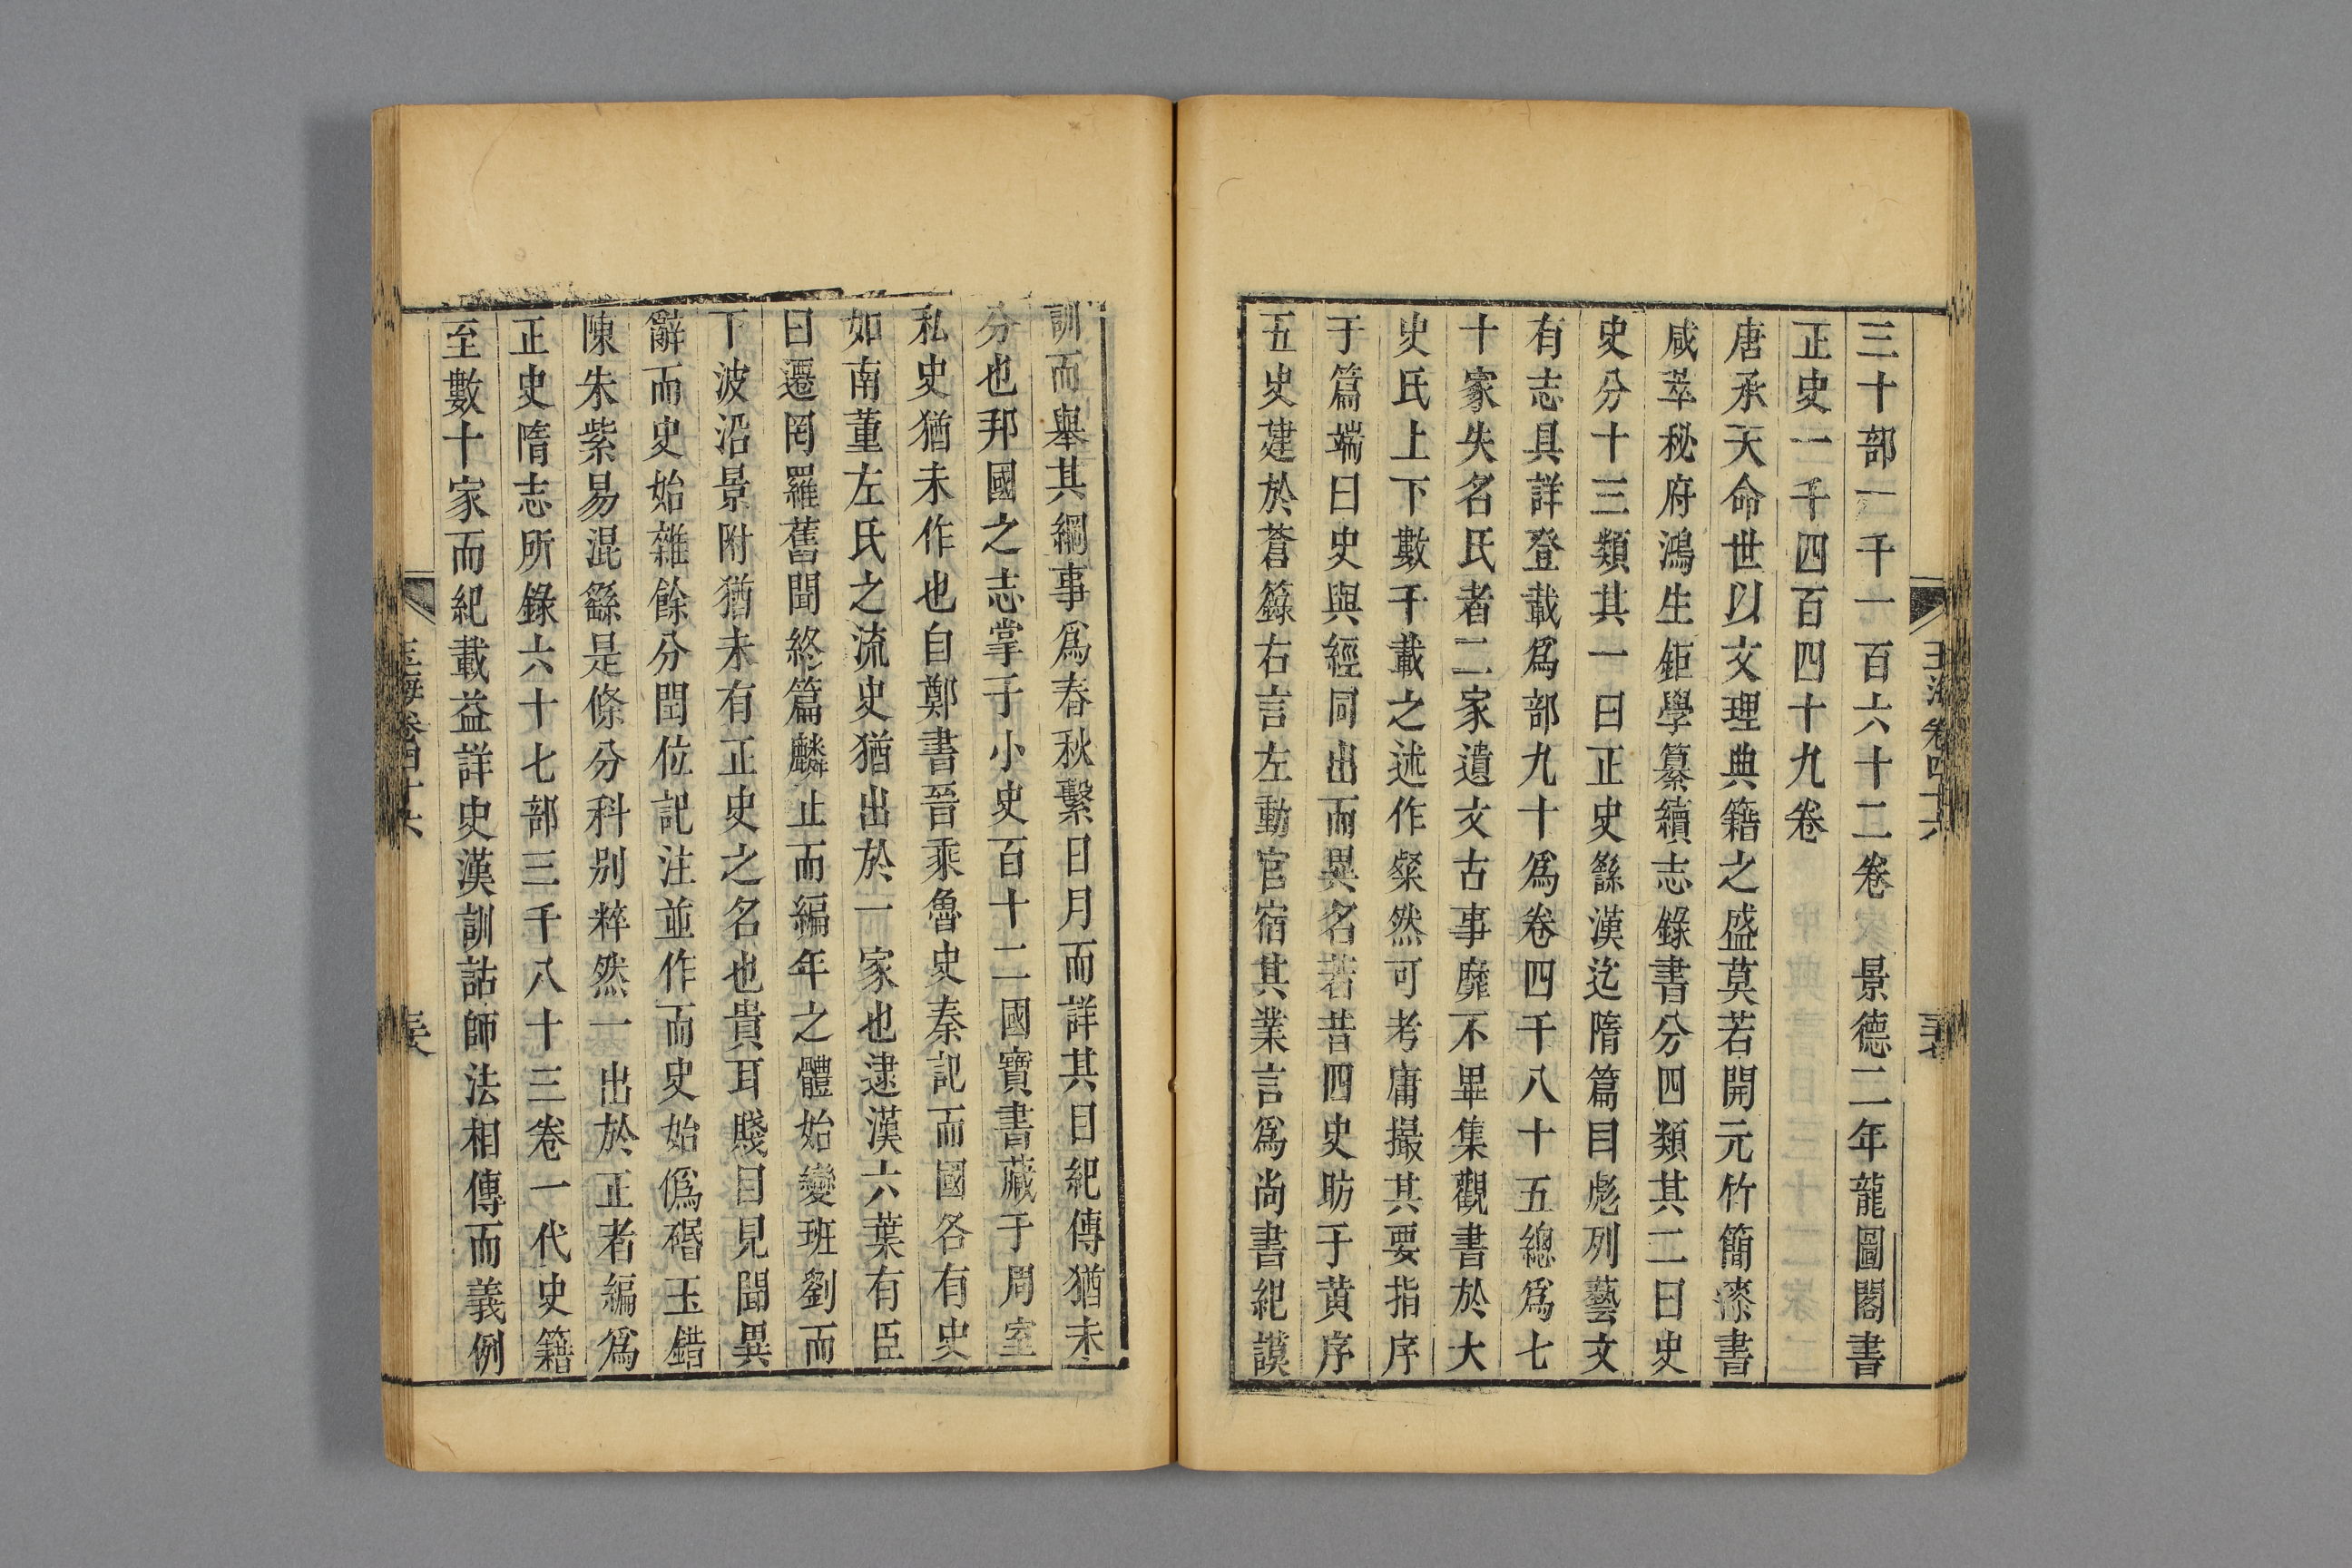 三十部一千一百六十二卷 景德二年龍圖閣書
正史一千四百四十九卷
唐承天命世以文理典籍之盛莫若開元竹簡漆書
咸萃秘府鴻生鉅學纂續志錄書分四類其二曰史
史分十三類其一曰正史繇漢迄隋篇目彪列藝文
有志具詳登載爲部九十爲卷四千八十五總爲七
十家失名氏者二家遺文古事靡不畢集觀書於大
史氏上下數千載之述作粲然可考庸撮其要指序
于篇端曰史與經同出而異名若昔四史昉于黄序
五史建於蒼籙右言左動官宿其業言爲尚書紀謨
訓而舉其綱事爲春秋繫日月而詳其目紀傳猶未
分也邦國之志掌于小史百十二國寶書藏于周室
私史猶未作也自鄭書晉乘魯史秦記而國各有史
如南董左氏之流史猶出於一家也逮漢六葉有臣
曰遷罔羅舊聞終篇麟止而編年之體始變班劉而
下波沿景附猶未有正史之名也貴耳賤目見聞異
辭而史始雜餘分閏位記注並作而史始僞碈玉錯
陳朱紫易混繇是條分科别粹然一出於正者編爲
正史隋志所錄六十七部三千八十三卷一代史籍
至數十家而紀載益詳史漢訓詁師法相傳而義例
玉海卷四十六